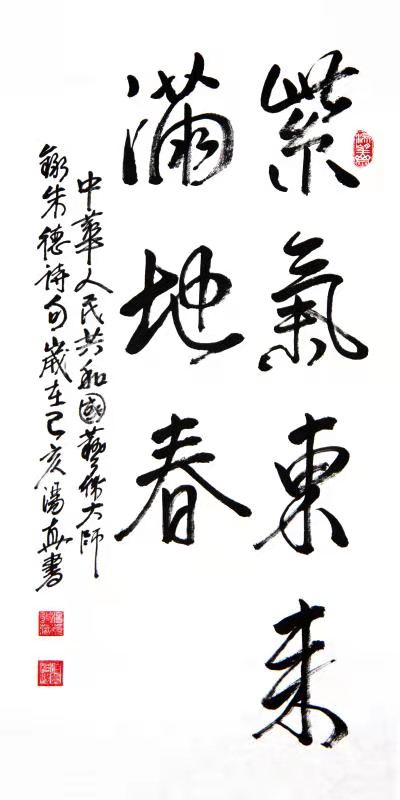 紫氣東来
滿地春
中華人民共和國藝術大師
錄朱德詩句歲在己亥湯真書